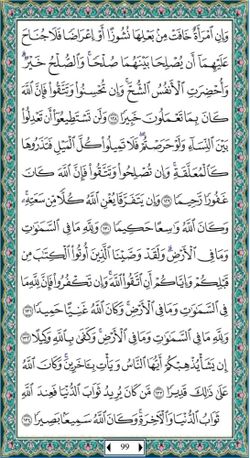 وَإِنِ ٱمْرَأَةٌ خَافَتْ مِنۢ بَعْلِهَا نُشُوزًا أَوْ إِعْرَاضًا فَلَا جُنَاحَ
عَلَيْهِمَآ أَن يُصْلِحَا بَيْنَهُمَا صُلْحًا ۚ وَٱلصُّلْحُ خَيْرٌ ۗ
وَأُحْضِرَتِ ٱلْأَنفُسُ ٱلشُّحَّ ۚ وَإِن تُحْسِنُوا۟ وَتَتَّقُوا۟ فَإِنَّ ٱللَّهَ
كَانَ بِمَا تَعْمَلُونَ خَبِيرًا ١٢٨ وَلَن تَسْتَطِيعُوٓا۟ أَن تَعْدِلُوا۟
بَيْنَ ٱلنِّسَآءِ وَلَوْ حَرَصْتُمْ ۖ فَلَا تَمِيلُوا۟ كُلَّ ٱلْمَيْلِ فَتَذَرُوهَا
كَٱلْمُعَلَّقَةِ ۚ وَإِن تُصْلِحُوا۟ وَتَتَّقُوا۟ فَإِنَّ ٱللَّهَ كَانَ
غَفُورًا رَّحِيمًا ١٢٩ وَإِن يَتَفَرَّقَا يُغْنِ ٱللَّهُ كُلًّا مِّن سَعَتِهِۦ ۚ
وَكَانَ ٱللَّهُ وَٰسِعًا حَكِيمًا ١٣٠ وَلِلَّهِ مَا فِى ٱلسَّمَٰوَٰتِ
وَمَا فِى ٱلْأَرْضِ ۗ وَلَقَدْ وَصَّيْنَا ٱلَّذِينَ أُوتُوا۟ ٱلْكِتَٰبَ مِن
قَبْلِكُمْ وَإِيَّاكُمْ أَنِ ٱتَّقُوا۟ ٱللَّهَ ۚ وَإِن تَكْفُرُوا۟ فَإِنَّ لِلَّهِ مَا
فِى ٱلسَّمَٰوَٰتِ وَمَا فِى ٱلْأَرْضِ ۚ وَكَانَ ٱللَّهُ غَنِيًّا حَمِيدًا ١٣١
وَلِلَّهِ مَا فِى ٱلسَّمَٰوَٰتِ وَمَا فِى ٱلْأَرْضِ ۚ وَكَفَىٰ بِٱللَّهِ وَكِيلًا ١٣٢
إِن يَشَأْ يُذْهِبْكُمْ أَيُّهَا ٱلنَّاسُ وَيَأْتِ بِـَٔاخَرِينَ ۚ وَكَانَ ٱللَّهُ
عَلَىٰ ذَٰلِكَ قَدِيرًا ١٣٣ مَّن كَانَ يُرِيدُ ثَوَابَ ٱلدُّنْيَا فَعِندَ ٱللَّهِ
ثَوَابُ ٱلدُّنْيَا وَٱلْـَٔاخِرَةِ ۚ وَكَانَ ٱللَّهُ سَمِيعًۢا بَصِيرًا ١٣٤
99